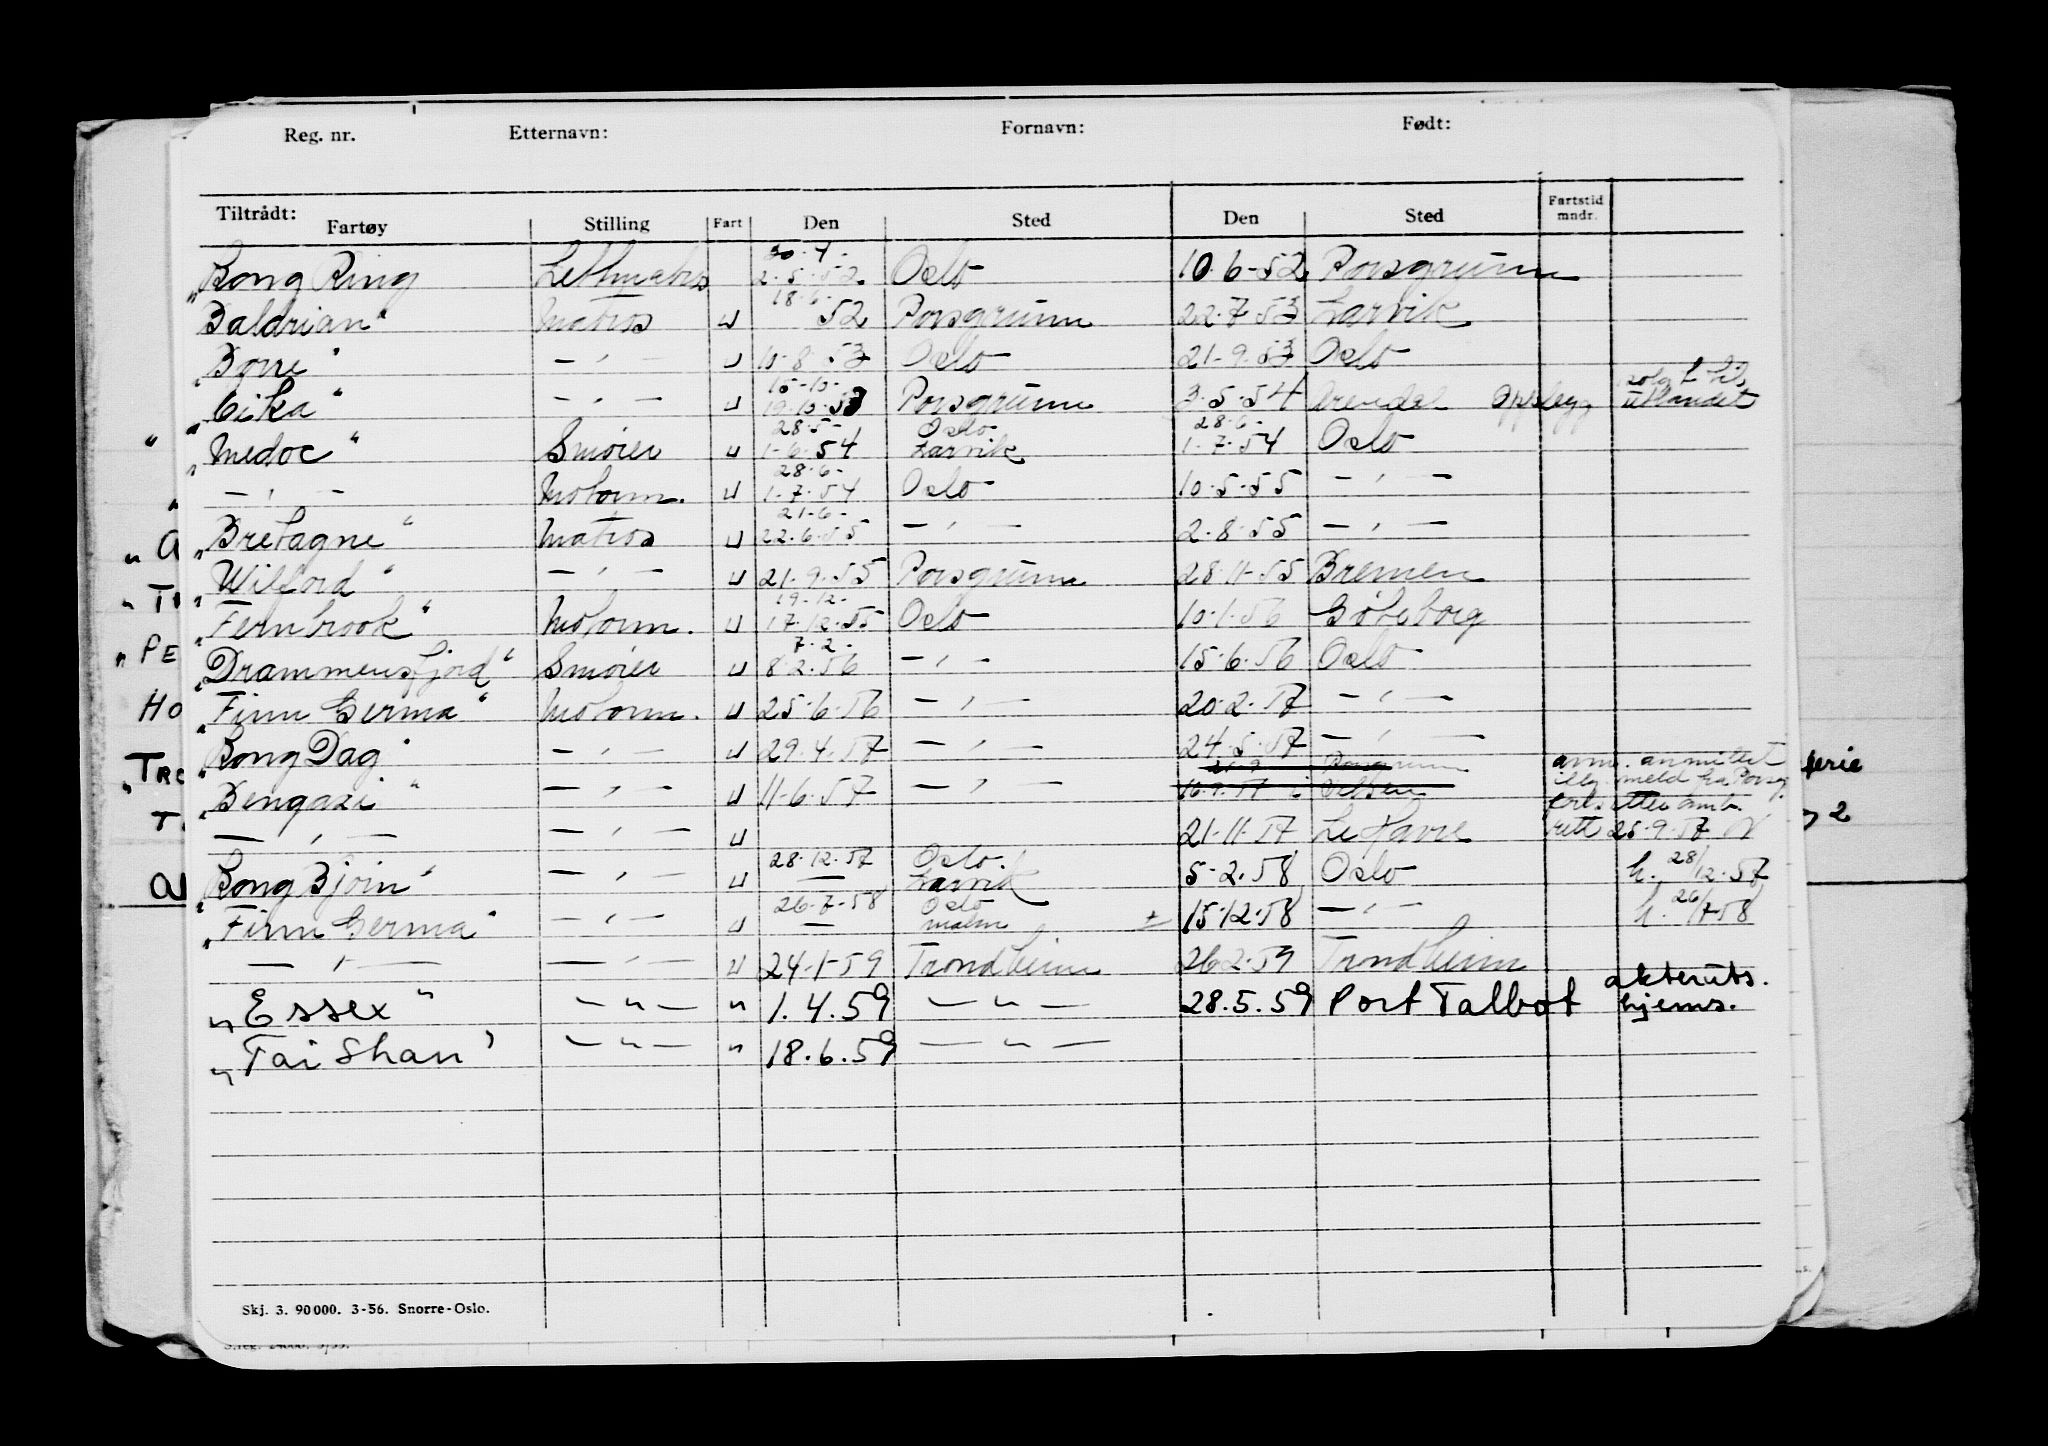 Reg. nr. Etternavn: Fornavn: Født:
Tiltrådt:
Fartøy Stilling Fart Den Sted Den Sted Fartstid mndr.
30.4.-
„Kong Ring Lettmatros 2.5.52 Oslo 10.6-52 Porsgrunn
18.6.-
Baldrian" Matros u 52 Porsgrunn 22.7.53 Larvik
„Borre" — , — u 10.8.53 Oslo 21.9.53 Oslo
15-10-
„Cika" — , — u 19.10.53 Porsgrunn 3.5.54 Arendal Opplegg solgt til utlandet
28.5- Oslo 28.6-
„Medoc" Smører u 1-6.54 Larvik 1.7.54 Oslo
28.6-
— , — Motorm. u 1.7.54 Oslo 10.5.55 — , —
21-6-
„Bretagne" Matros u 22.6.55 — , — 2.8.55 — , —
„Wilford" — , — u 21.9.55 Porsgrunn 28.11-55 Bremen
19-12-
„Fernbrook" Motorm. u 17.12.55 Oslo 10.1.56 Göteborg
7.2.-
„Drammensfjord" Smører u 8.2.56 — , — 15.6.56 Oslo
„Finn Germa" Motorm. u 25.6.56 — , — 20.2.57 — , —
„Kong Dag" — , — u 29.4.57 — , — 24.5.57 — , —
„Bengazi" — , — u 11-6.57 — , —
— , — — , — u 21-11-57 Le Havre rett 25.9.57
28.12.57 Oslo.
„Kong Bjørn" — , — u — Larvik 5-2.58 Oslo h. 28/12.57
26.7-58 Oslo
„Finn Germa" — , — u — Malm ± 15.12.58 — , — h. 26/7-58
— , — — , — u 24-1-59 Trondheim 26.2.59 Trondheim
akteruts.
„Essex" — " — " 1.4.59 — " — 28.5.59 Port Talbot hjems.
„Tai Shan' — " — " 18.6.59 — " —
Skj. 3. 90 000. 3-56. Snorre-Oslo.